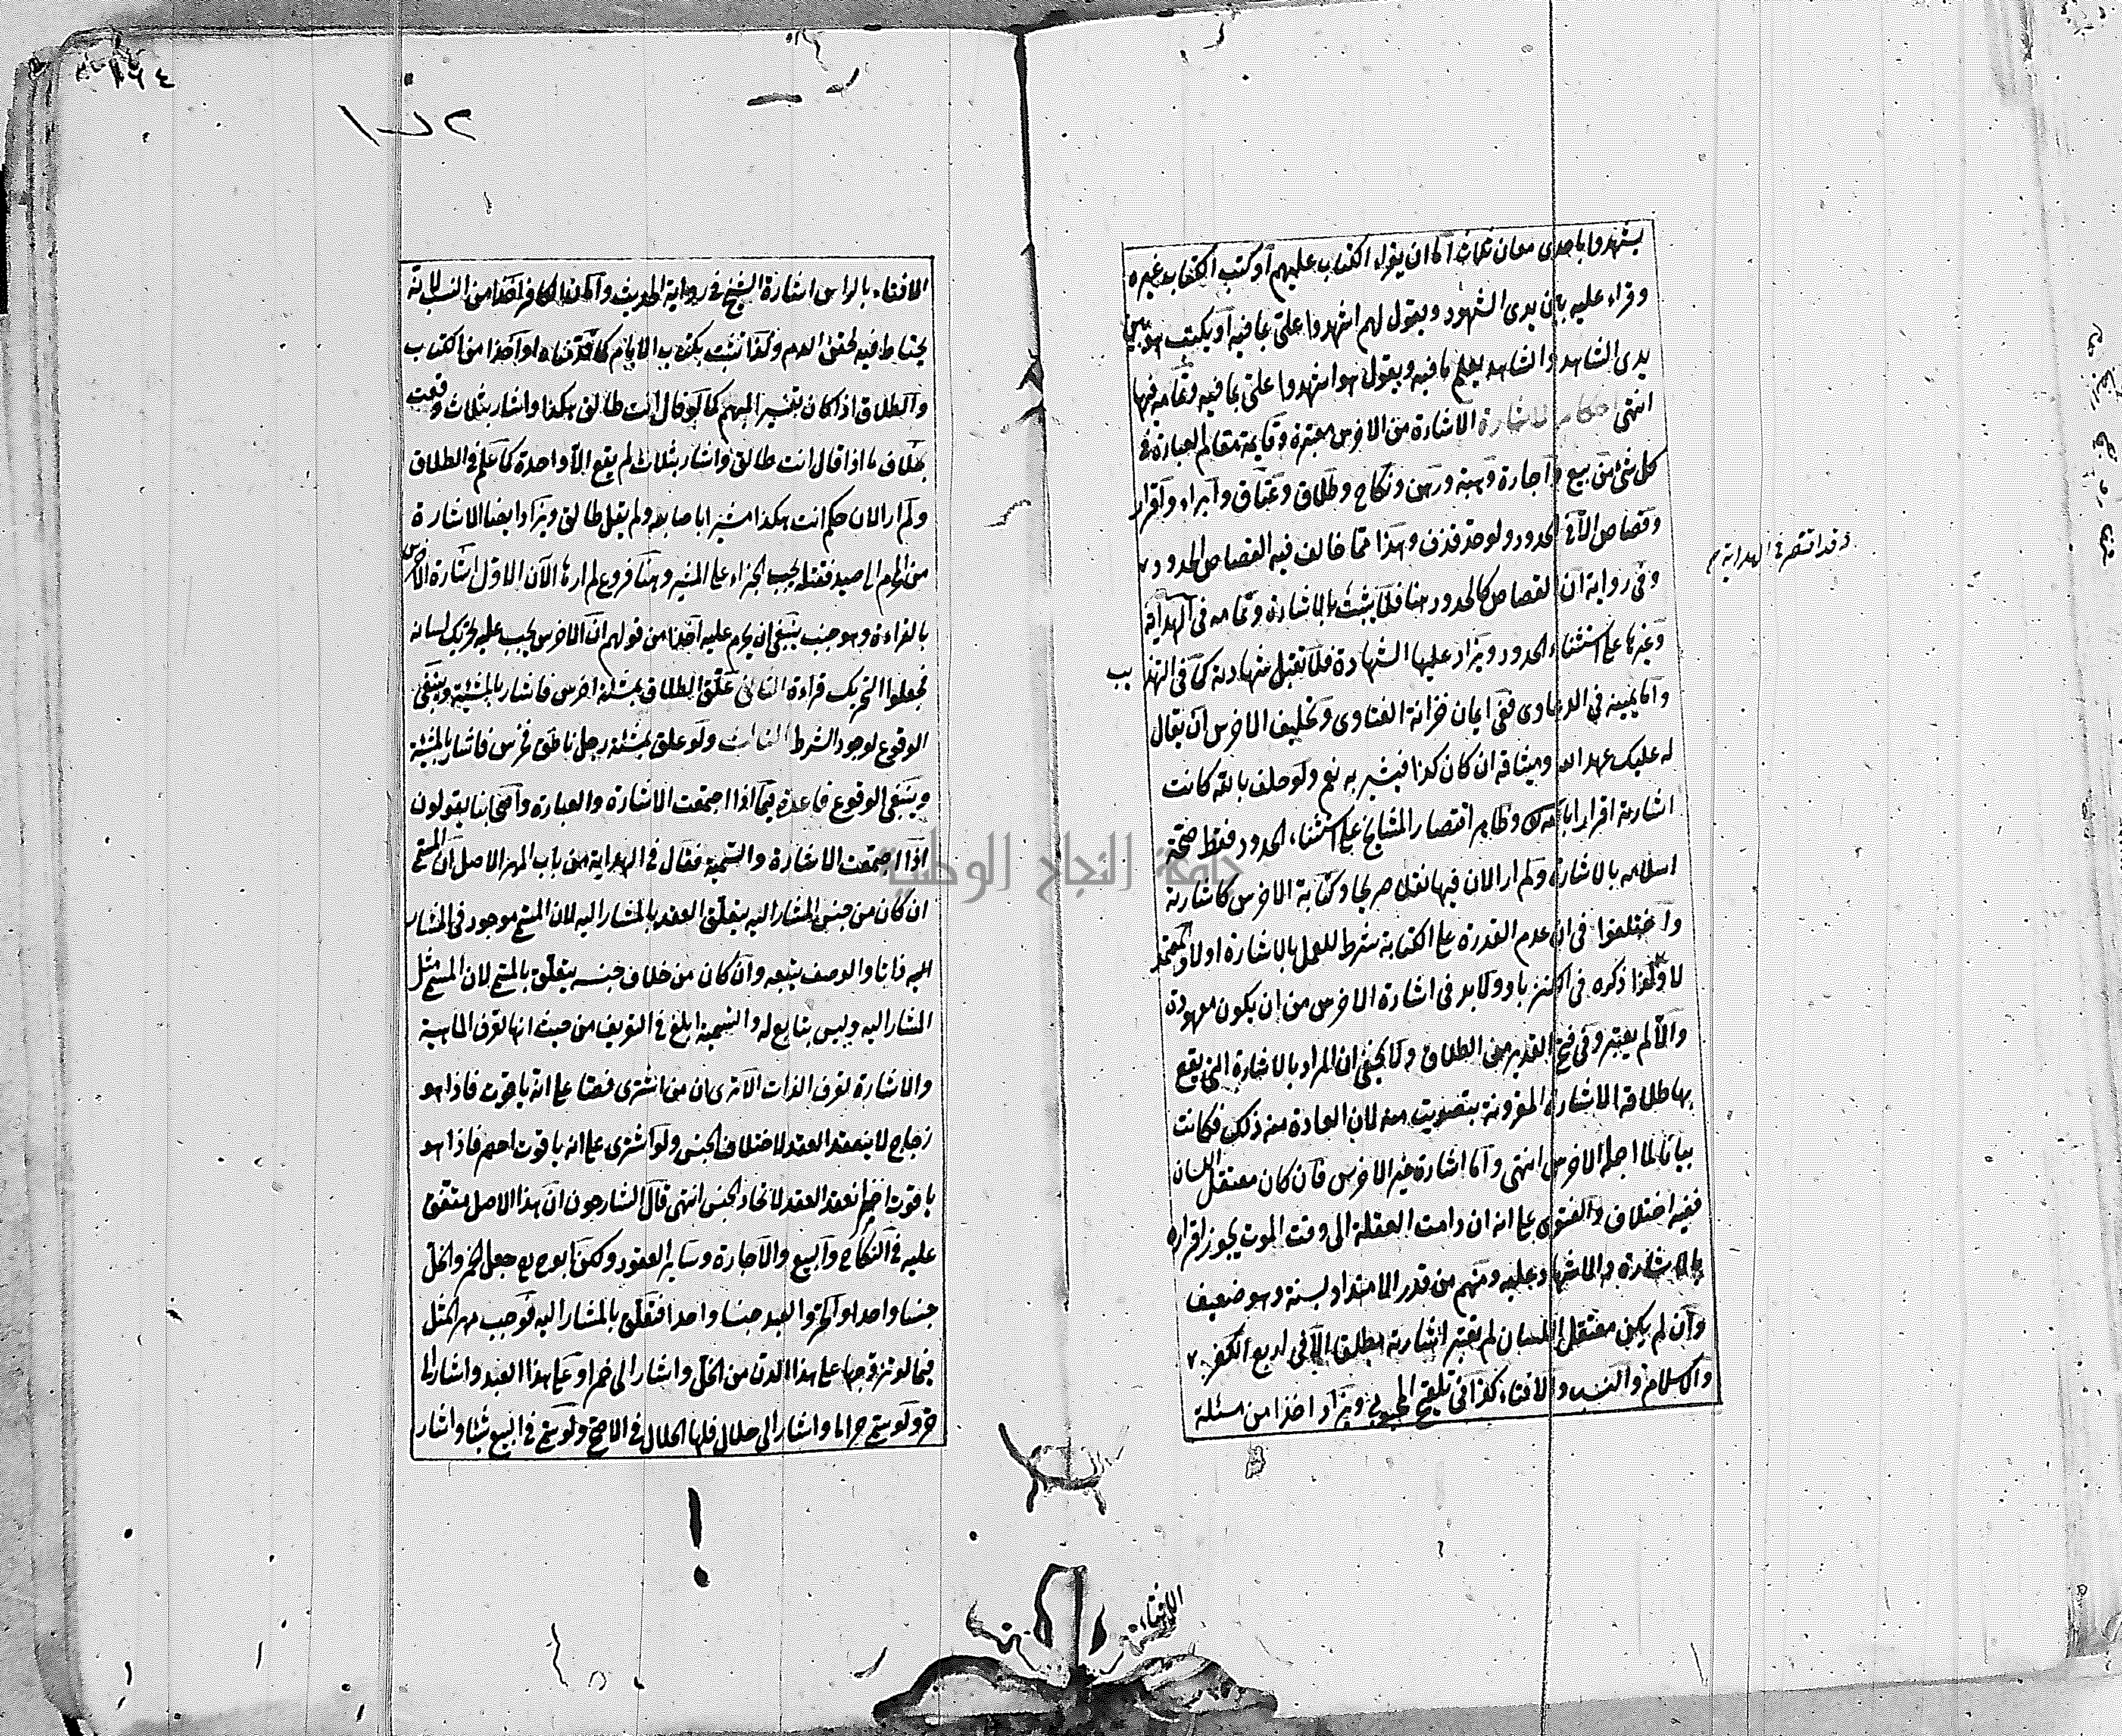 يشهدوا باحدى معان ثلاث اما ان يقراء الكتاب عليهم او كتب الكتاب غيره
وقراء عليه بين يدى الشهود ويقول لهم اشهدوا على بما فيه او يكتب هو بين
يدى الشاهد والشاهد يعلم ما فيه ويقول هو اشهدوا على بما فيه وتمامه فيها
انتهى احكام الاشارة الاشارة من الاخرس معتبرة وقايمة مقام العبارة فى
كل شئ من بيع واجارة وهبة ورهن ونكاح وطلاق وعتاق وابراء واقرار
وقصاص الا فى الحدود ولو حد قذف وهذا مما خالف فيه القصاص الحدود
وفى رواية ان القصاص كالحدود هنا فلا يثبت بالاشارة وتمامه فى الهداية
وقد اقتصر فى الهداية م
وغيرها على استثناء الحدود ويزاد عليها الشهادة فلا تقبل شهادته كما فى التهذيب
واما يمينه فى الدعاوى ففى ايمان خزانة الفتاوى وتحليف الاخرس ان يقال
له عليك عهد الله وميثاقه ان كان كذا فيشير به نعم ولو حلف بالله كانت
اشارته اقرارا بالله وظاهر اقتصار المشايخ على استثناء الحدود فقط صحة
اسلامه بالاشارة ولم ار الان فيها نقلا صريحا وكتابة الاخرس كاشارته
واختلفوا فى ان عدم القدرة على الكتابة شرط للعمل بالاشارة او لا والمعتمد
لا ولهذا ذكره فى الكنز باو ولا بد فى اشارة الاخرس من ان يكون معهودة
والا لم يعتبر وفى فتح القدير من الطلاق ولا يخفى ان المراد بالاشارة التى يقع
بها طلاقه الاشارة المقرونة بتصويت منه لان العادة منه ذلك فكانت
بيانا لما اجمله الاخرس انتهى واما اشارة غير الاخرس فان كان معتقل اللسان
ففيه اختلاف والفتوى على انه ان دامت العقلة الى وقت الموت يجوز اقراره
بالاشارة والاشهاد عليه ومنهم من قدر الامتداد بسنة وهو ضعيف
وان لم يكن معتقل اللسان لم يعتبر اشارته مطلقا الا فى اربع الكفر
والاسلام والنسب والافتاء كذا فى تلقيح المحبوبى ويزاد اخذا من مسئلة
الافتاء
١٦٤
الافتاء بالراس اشارة الشيخ فى رواية الحديث وامان الكافر اخذا من النسب لانه
يحتاط فيه لحقن الدم ولهذا تثبت بكتاب الامام كما قدمناه او اخذا من الكتاب
والطلاق اذا كان تفسير المبهم كما لو قال انت طالق هكذا واشار بثلاث وقعت
بخلاف ما اذا قال انت طالق واشار بثلاث لم يقع الا واحدة كما علم فى الطلاق
ولم ار الان حكم انت هكذا مشيرا باصابعه ولم يقل طالق ويزاد ايضا الاشارة
من المحرم الى صيد فقتله يجب الجزاء على المشير وهنا فروع لم ارها الان الاول اشارة الاخرس
بالقراءة وهو جنب ينبغى ان يحرم عليه اخذا من قولهم ان الاخرس يجب عليه تحريك لسانه
فجعلوا التحريك قراءة الثانى علق الطلاق بمشيئة اخرس فاشار بالمشيئة وينبغى
الوقوع لوجود الشرط الثالث ولو علق بمشيئة رجل ناطق فخرس فاشار بالمشيئة
وينبغى الوقوع قاعدة فيما اذا اجتمعت الاشارة والعبارة واصحابنا يقولون
اذا اجتمعت الاشارة والتسمية فقال فى الهداية من باب المهر الاصل ان المسمى
ان كان من جنس المشار اليه يتعلق العقد بالمشار اليه لان المسمى موجود فى المشار
اليه ذاتا والوصف يتبعه وان كان من خلاف جنسه يتعلق بالمسمى لان المسمى مثل
المشار اليه وليس بتابع له والتسمية ابلغ فى التعريف من حيث انها تعرف الماهية
والاشارة تعرف الذات الا ترى ان من اشترى فصا على انه ياقوت فاذا هو
زجاج لا ينعقد العقد لاختلاف الجنس ولو اشترى على انه ياقوت احمر فاذا هو
ياقوت اخضر انعقد العقد لاتحاد الجنس انتهى قال الشارحون ان هذا الاصل متفق
عليه فى النكاح والبيع والاجارة وساير العقود ولكن ابو ح رح جعل الخمر والخل
جنسا واحدا والحر والعبد جنسا واحدا فتعلق بالمشار اليه فوجب مهر المثل
فيما لو تزوجها على هذا الدن من الخل واشار الى خمر او على هذا العبد واشار الى
حر ولو سمى حراما واشار الى حلال فلها الحلال فى الاصح ولو سمى فى البيع شيئا واشار
جامعة النجاح الوطنية